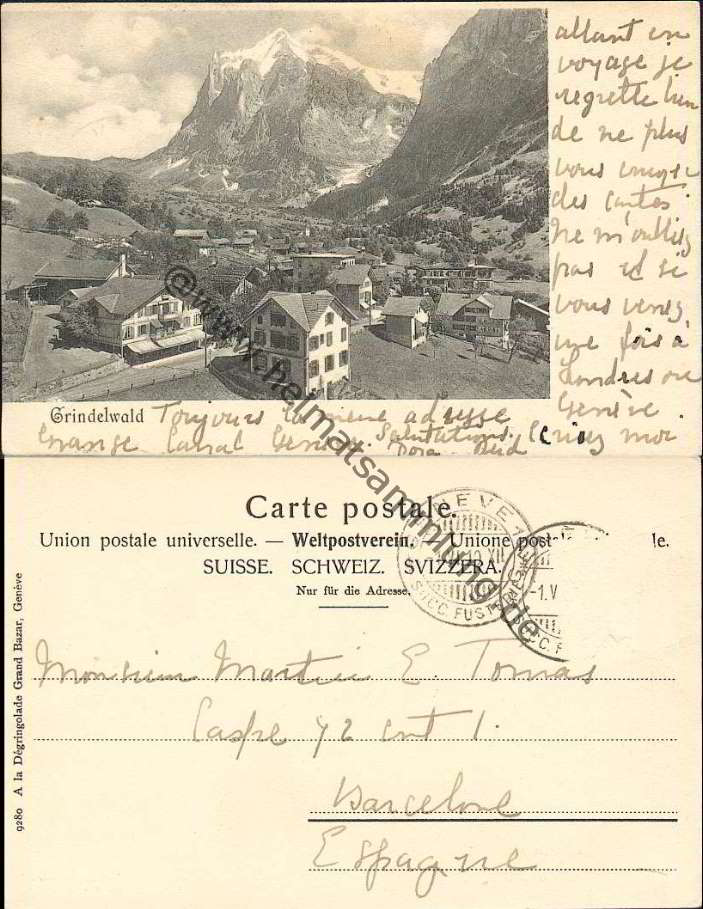 allant en
voyage je
regrette bien
de ne plus
vous envoyer
des cartes.
Ne m'oubliez
pas et si
vous venez
une fois à
Londres ou
Genève
Grindelwald Toujours la même adresse
Grange Genève. Salutations. Ecrivez moi
Dora
©www.heimatsammlung.de
Carte postale.
Union postale universelle. — Weltpostverein. — Unione postale
SUISSE. SCHWEIZ. SVIZZERA.
Nur für die Adresse.
GENÈVE
XII
SUCC. FUSTERIE
-1.V
SUCC. F
Monsieur Martin E. Tomas
Caspe 72 ent 1.
Barcelone
Espagne
9280 A la Dégringolade Grand Bazar, Genève